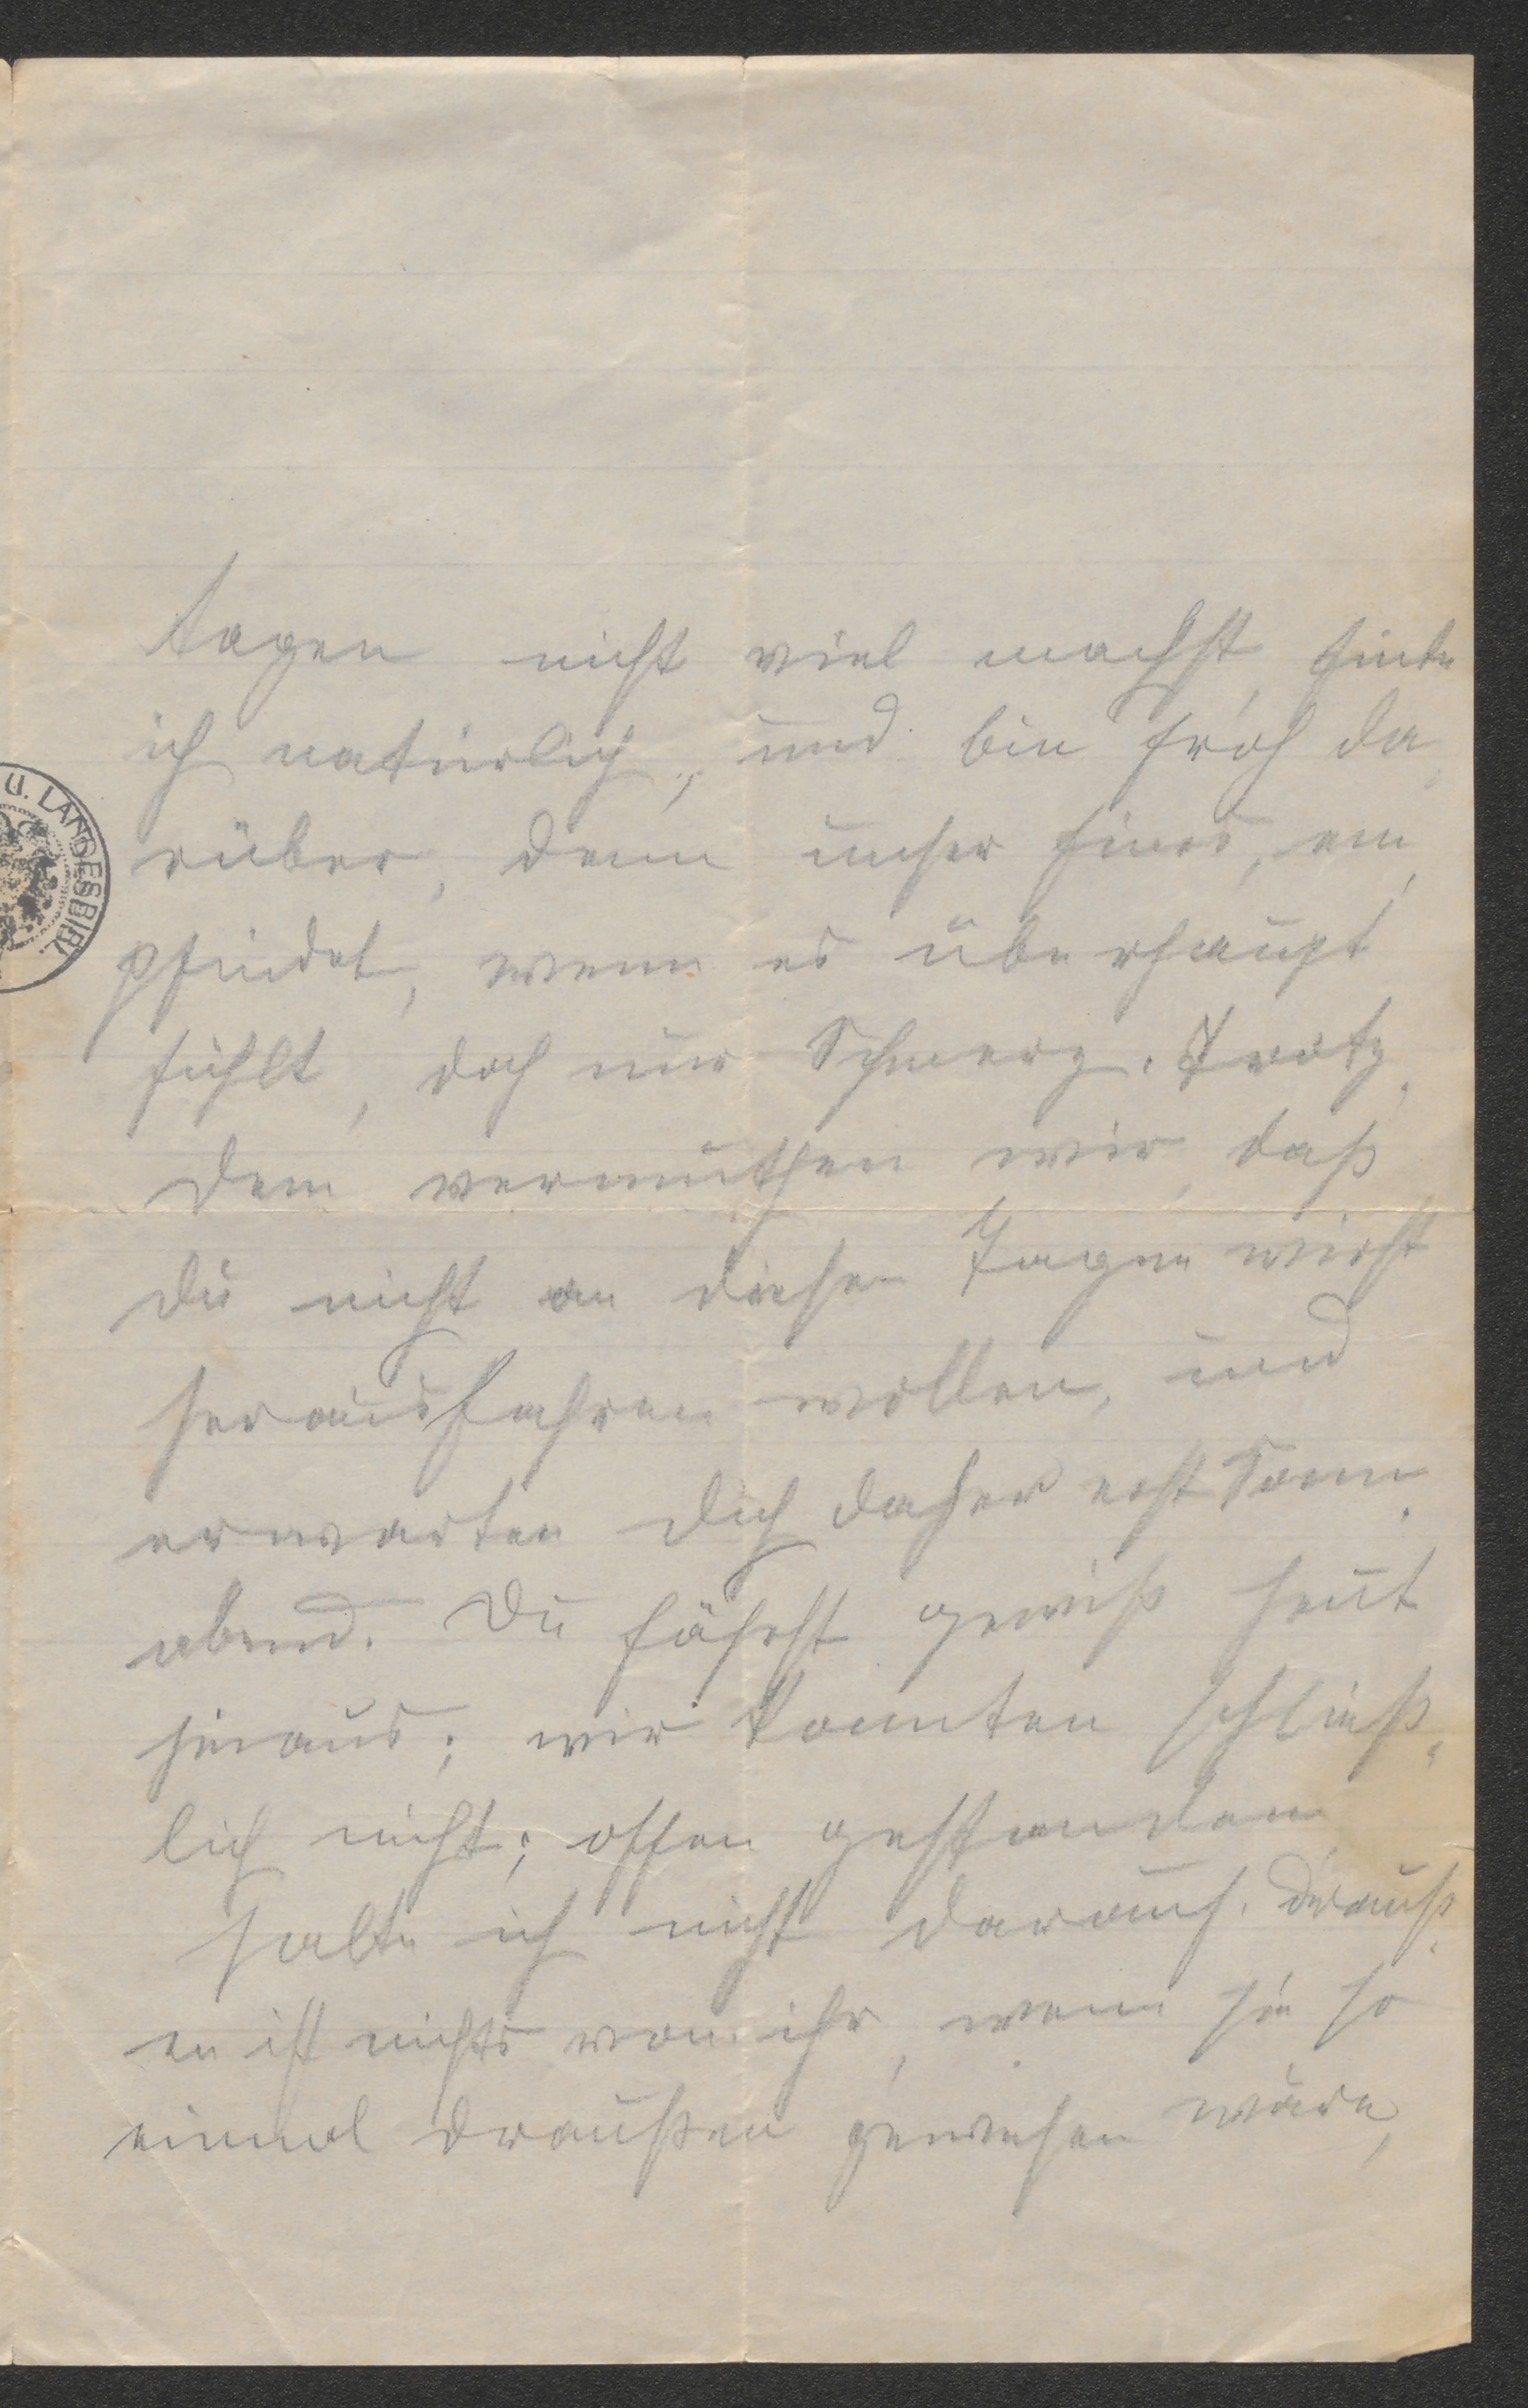 tagen nicht viel machst, finde
ich natürlich, und bin froh da„
rüber, denn unser Eines, em„
pfindet, wenn es überhaupt
fühlt, doch nur Schmerz. Trotz„
dem vermuthen wir, daß
Du nicht an diesen Tagen wirst
herausfahren wollen, und
erwarten Dich daher erst Sonn„
abend. Du fährst gewiß heut
hinaus; wir konnten schließ„
lich nicht; offen gestanden
halte ich nicht darauf. Drauß„
en ist nichts von ihr, wenn sie so
einmal draußen gewesen wäre,
U. LANDESBIBL.